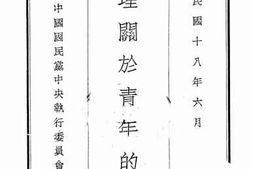 民國十八年六月
理關於青年的
中國國民黨中央執行委員會